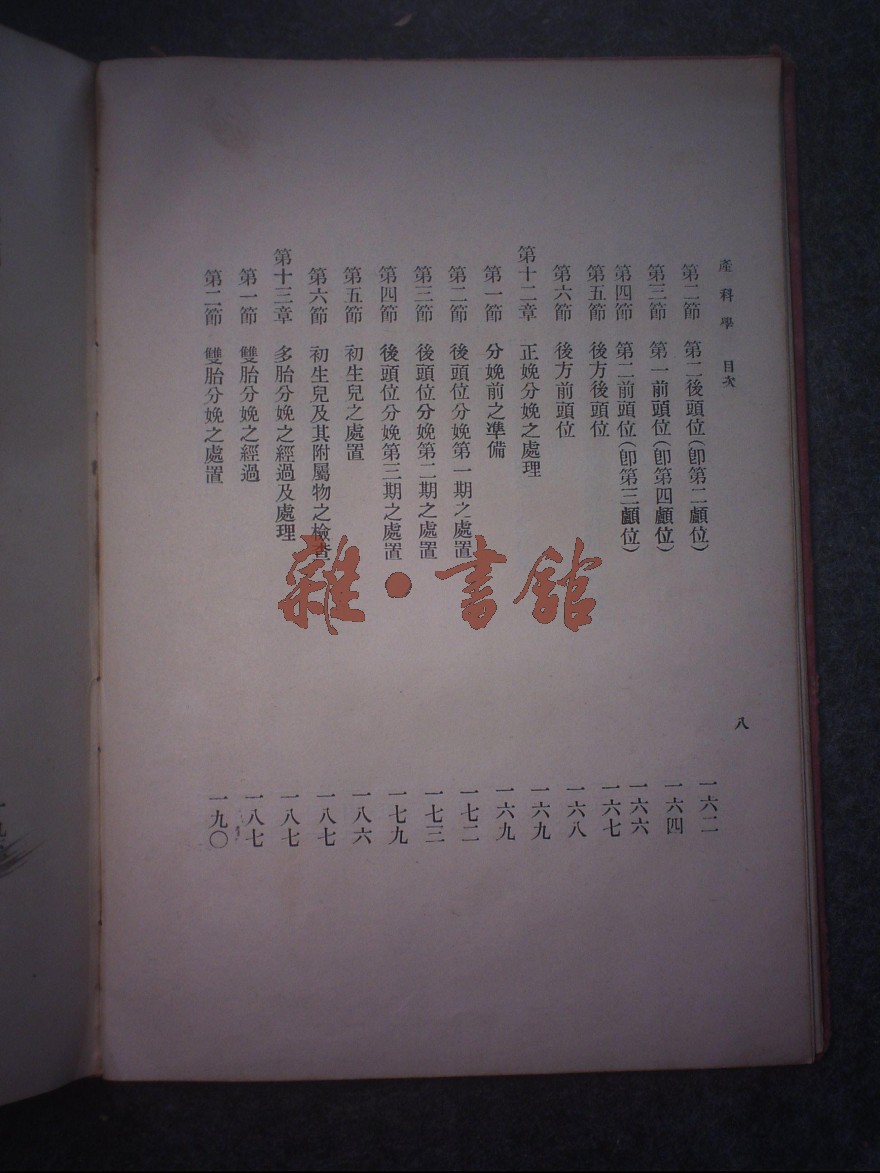 產科學 目次
八
第二節 第二後頭位(卽第二顱位) 一六二
第三節 第一前頭位(卽第四顱位) 一六四
第四節 第二前頭位(卽第三顱位) 一六六
第五節 後方後頭位 一六七
第六節 後方前頭位 一六八
第十二章 正規分娩之處理 一六九
第一節 分娩前之準備 一六九
第二節 後頭位分娩第一期之處置 一七二
第三節 後頭位分娩第二期之處置 一七三
第四節 後頭位分娩第三期之處置 一七九
第五節 初生兒之處置 一八六
第六節 初生兒及其附屬物之檢查 一八七
第十三章 多胎分娩之經過及處理 一八七
第一節 雙胎分娩之經過 一八七
第二節 雙胎分娩之處置 一九〇
雜·書館